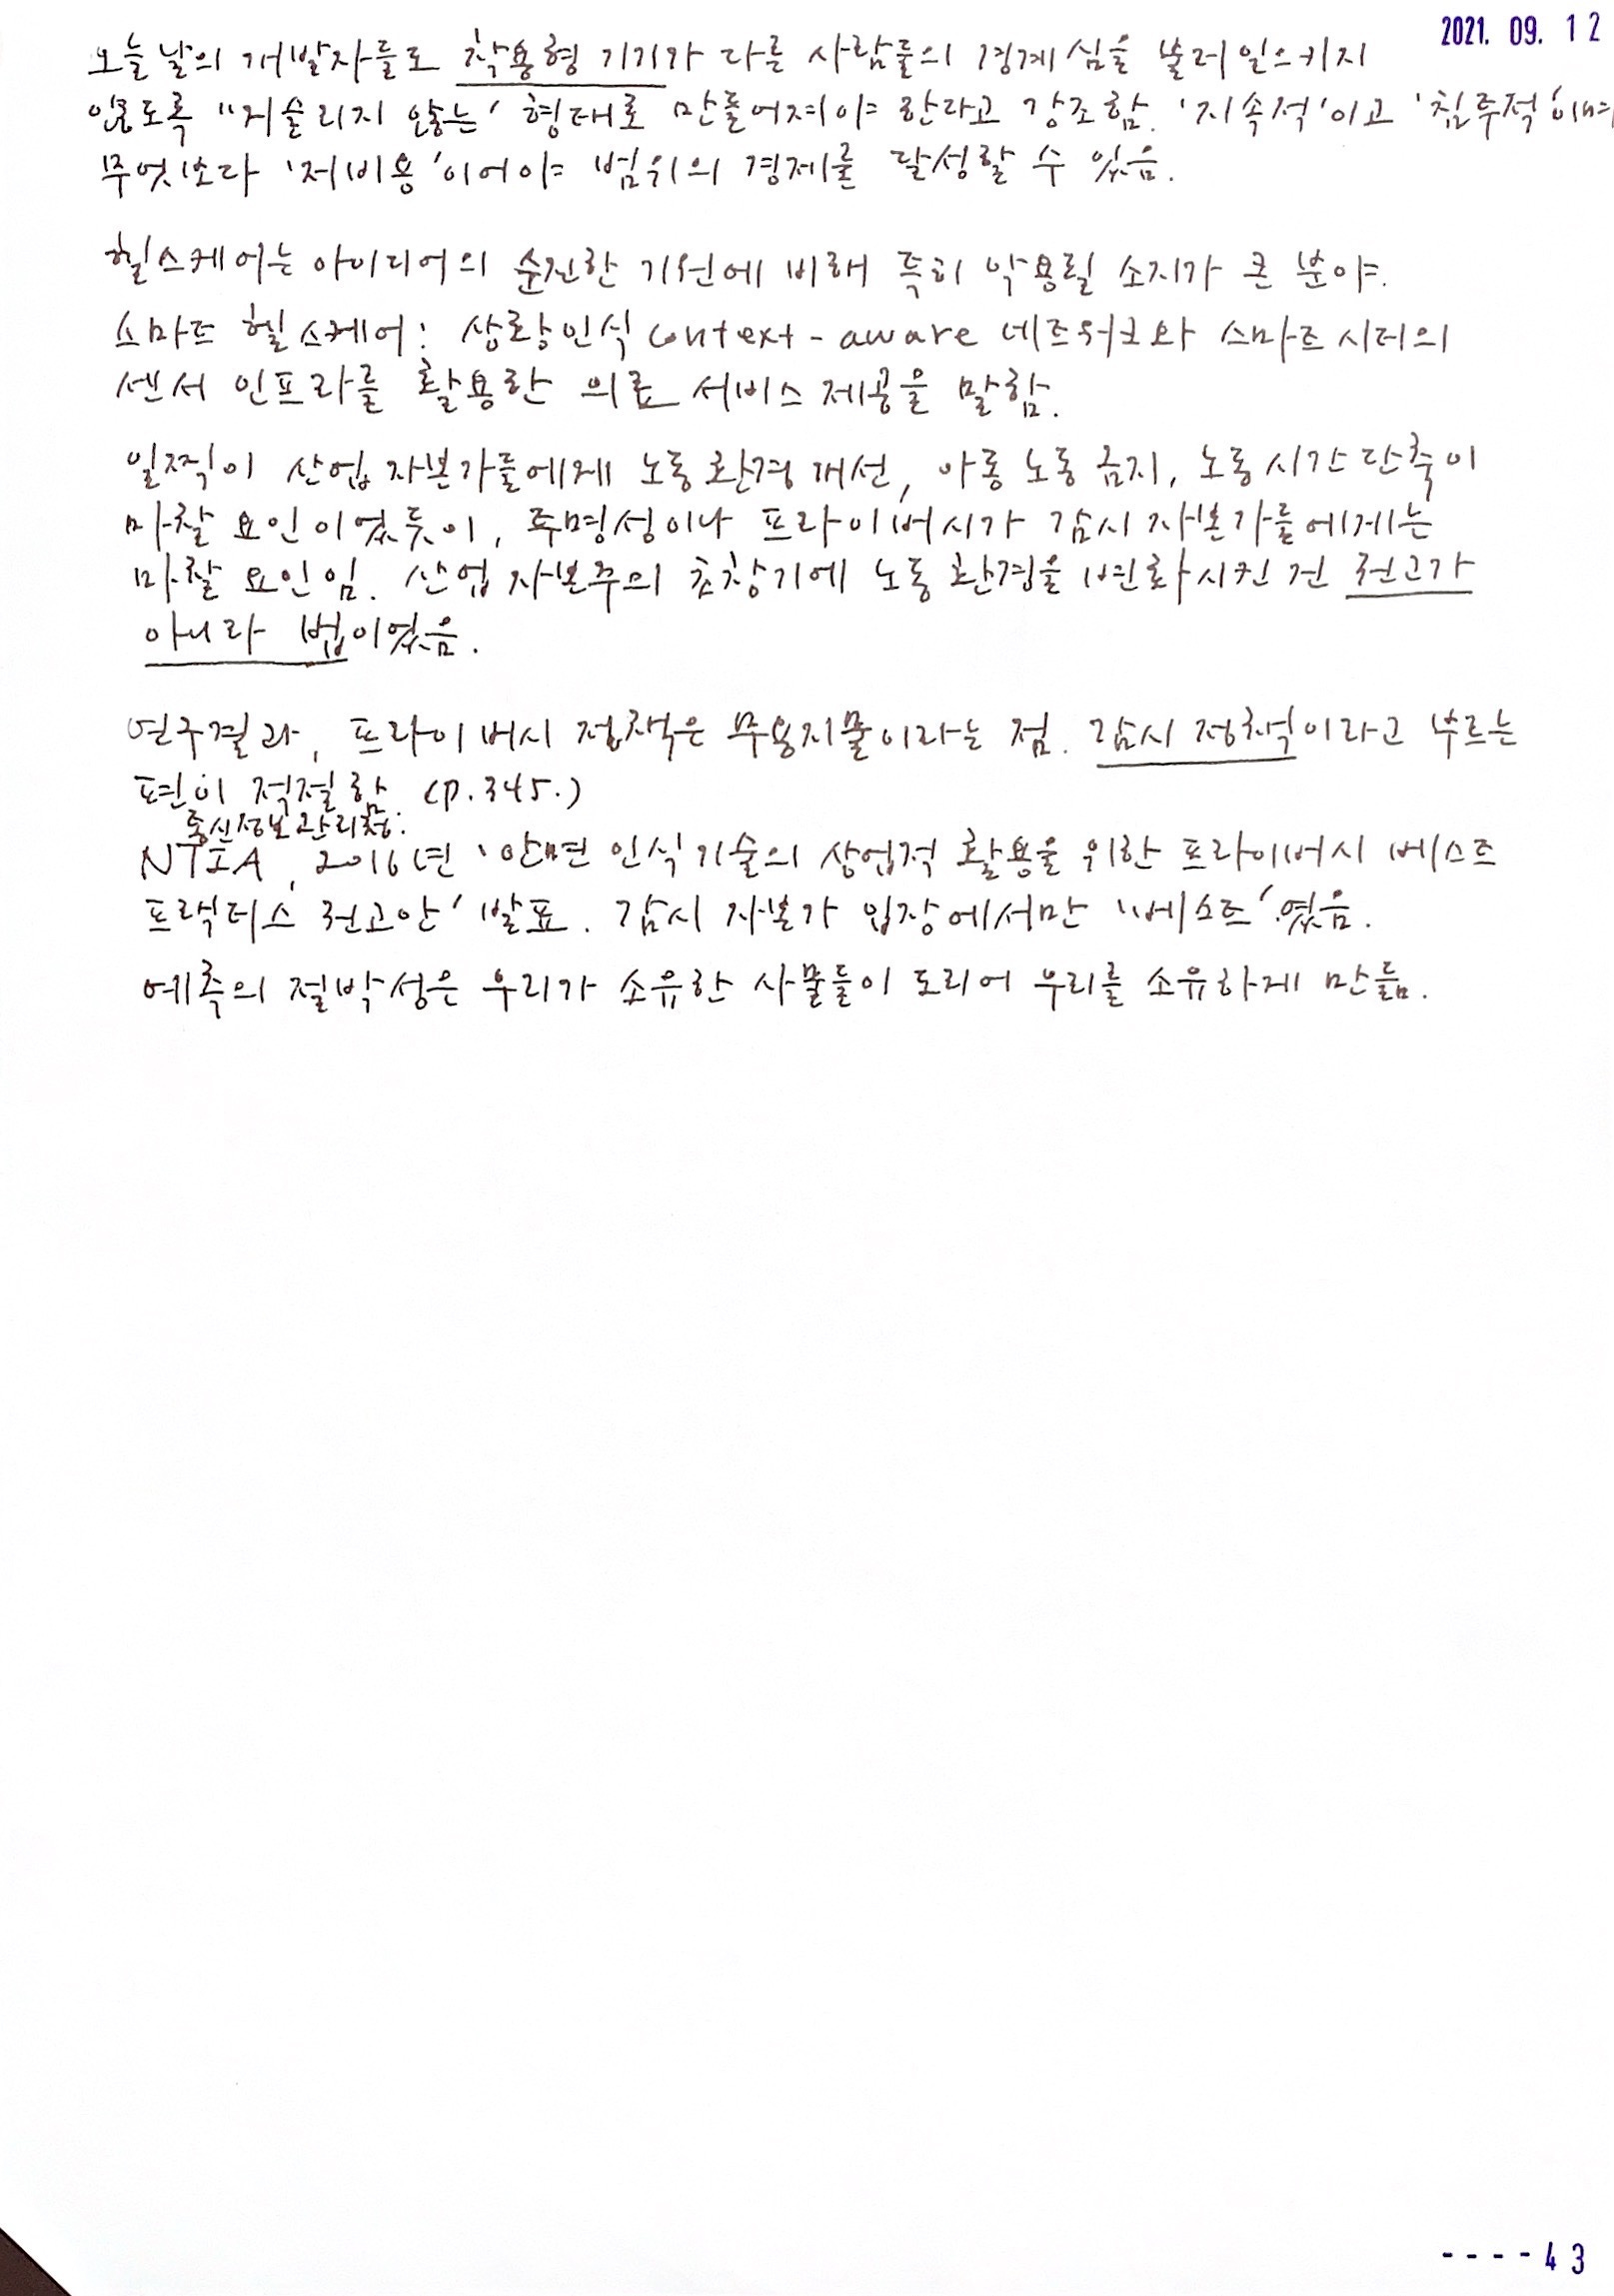 2021. 09. 12
오늘날의 개발자들도 착용형 기기가 다른 사람들의 경계심을 불러일으키지
않도록 "거슬리지 않는' 형태로 만들어져야 한다고 강조함. '지속적'이고 '침투적'이며
무엇보다 '저비용'이어야 범위의 경제를 달성할 수 있음.
헬스케어는 아이디어의 순진한 기원에 비해 특히 악용될 소지가 큰 분야.
스마트 헬스케어: 상황인식 context-aware 네트워크와 스마트시티의
센서 인프라를 활용한 의료 서비스 제공을 말함.
일찍이 산업 자본가들에게 노동환경 개선, 아동 노동 금지, 노동시간 단축이
마찰 요인이었듯이, 투명성이나 프라이버시가 감시 자본가들에게는
마찰 요인임. 산업 자본주의 초창기에 노동 환경을 변화시킨 건 권고가
아니라 법이었음.
연구결과, 프라이버시 정책은 무용지물이라는 점. 감시 정책이라고 부르는
편이 적절함 (p.345.)
통신정보관리청:
NTIA, 2016년 '안면 인식기술의 상업적 활용을 위한 프라이버시 베스트
프랙티스 권고안' 발표. 감시 자본가 입장에서만 "베스트'였음.
예측의 절박성은 우리가 소유한 사물들이 도리어 우리를 소유하게 만듦.
----43